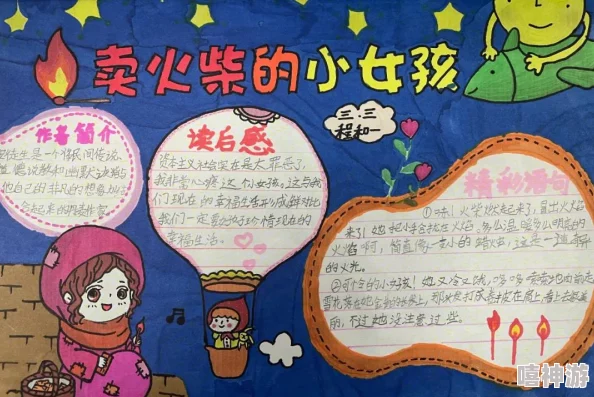 卖火柴的小女孩
三.三
程和一
作者简介
安徒生是一个将民间传说、
他自己的非凡的想象力结
合起来的
读后感
资本主义社会实在是太罪恶了，
我非常心疼这个小女孩，这与我
们现在的幸福生活形成鲜对比
我们一定要好好珍惜现在的
幸福生活。
精彩语句
①哧！火柴燃起来了，冒出火焰
来了！她把小手拢在火焰上。多么温暖多么明亮的
火焰啊，简直像一支小小的蜡烛，这是一道奇异
的火光。
②可怜的小女孩！她又冷又饿，哆哆嗦嗦地向前走
雪花落在她金黄的长发上，那头发打成卷披在肩上，看上去很美
丽，不过她没注意过些。
嘻神游